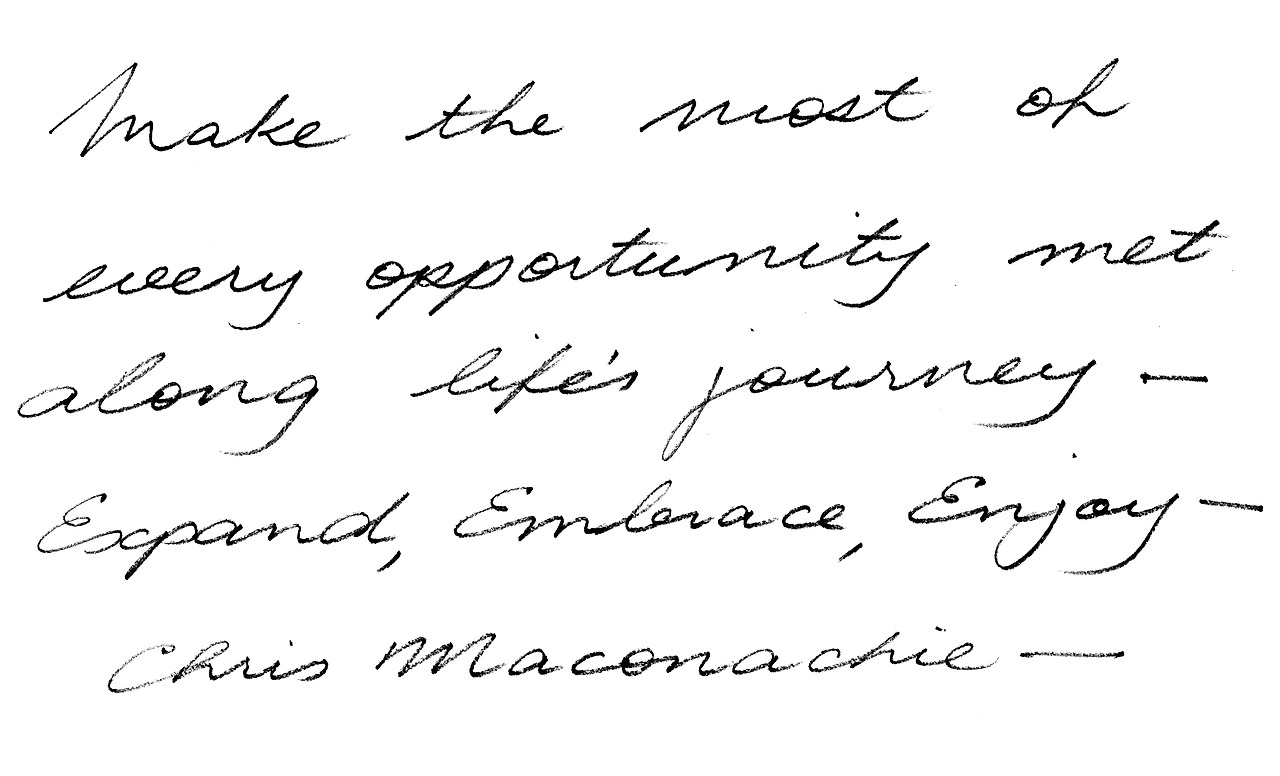 Make the most of
every opportunity met
along life's journey —
Expand, Embrace, Enjoy —
Chris Maconachie —